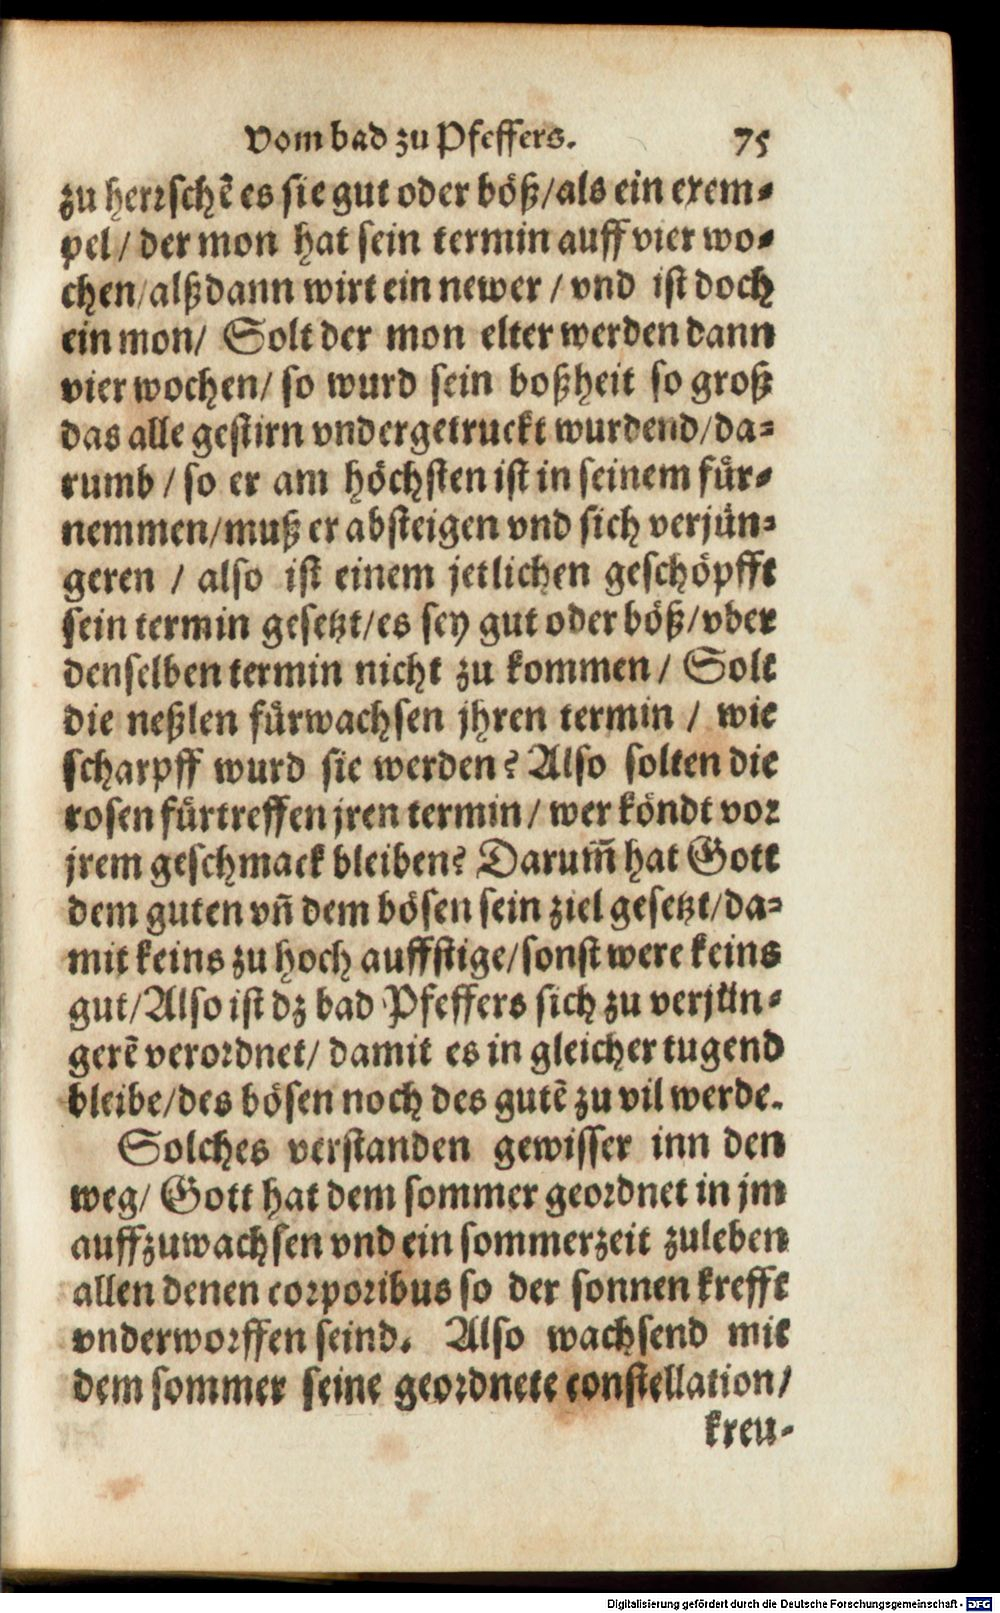 Vom bad zu Pfeffers. 75
zu herrschē es sie gut oder böß/als ein exem-
pel/ der mon hat sein termin auff vier wo-
chen/alßdann wirt ein newer / vnd ist doch
ein mon/ Solt der mon elter werden dann
vier wochen/ so wurd sein boßheit so groß
das alle gestirn vndergetruckt wurdend/da-
rumb / so er am höchsten ist in seinem für-
nemmen/muß er absteigen vnd sich verjün-
geren / also ist einem jetlichen geschöpfft
sein termin gesetzt/es sey gut oder böß/vber
denselben termin nicht zu kommen/ Solt
die neßlen fürwachsen jhren termin / wie
scharpff wurd sie werden? Also solten die
rosen fürtreffen jren termin/ wer köndt vor
jrem geschmack bleiben? Darum̄ hat Gott
dem guten vn̄ dem bösen sein ziel gesetzt/da-
mit keins zu hoch auffstige/sonst were keins
gut/Also ist dz bad Pfeffers sich zu verjün-
gerē verordnet/ damit es in gleicher tugend
bleibe/des bösen noch des gutē zu vil werde.
Solches verstanden gewisser inn den
weg/ Gott hat dem sommer geordnet in jm
auffzuwachsen vnd ein sommerzeit zuleben
allen denen corporibus so der sonnen krefft
vnderworffen seind. Also wachsend mit
dem sommer seine geordnete constellation/
kreu-
Digitalisierung gefördert durch die Deutsche Forschungsgemeinschaft - DFG